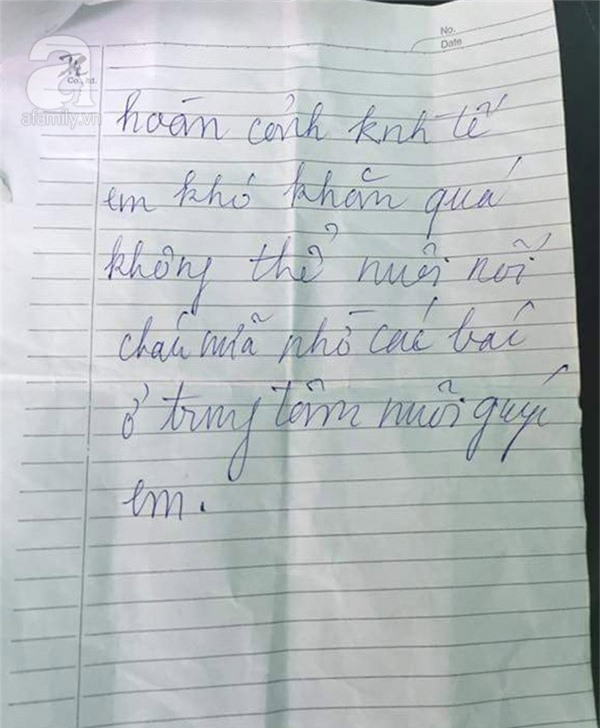 No.
Date
Co., ltd.
afamily.vn
hoán cảnh knh tế
em khó khăn quá
không thể nuôi nổi
cháu nữa nhờ các bác
ở trung tâm nuôi guýt
em.